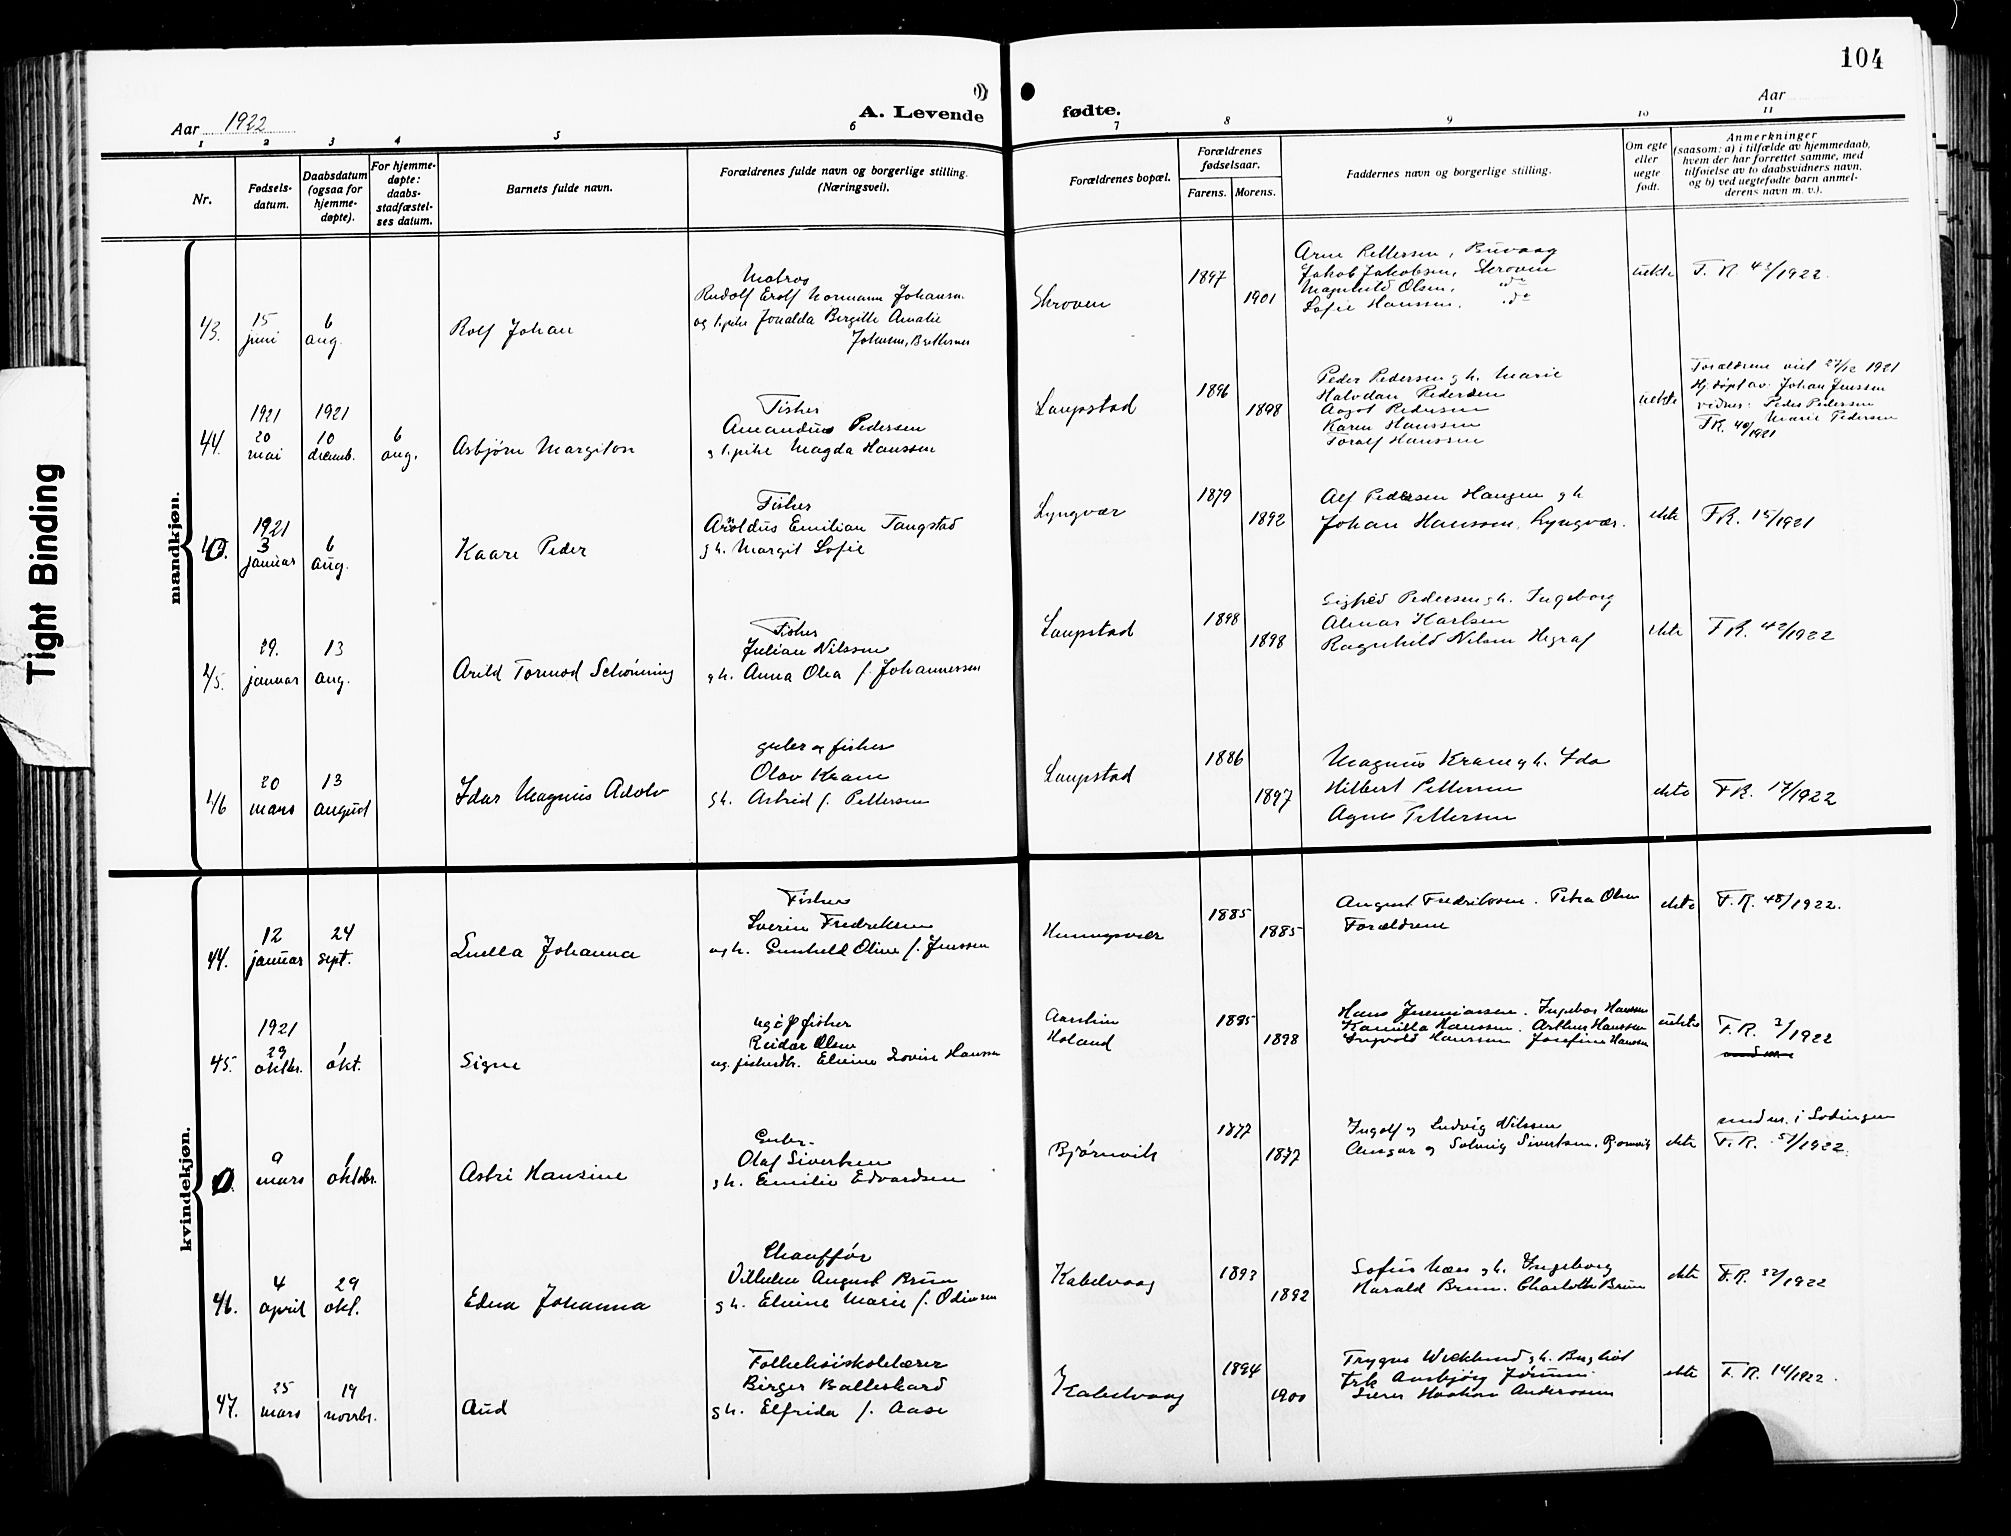 104
Aar 1922
A. Levende fødte.
Aar
1 2 3 4 5 6 7 8 9 10 11
Nr.
Fødsels-
datum.
Daabsdatum
(ogsaa for
hjemme-
døpte).
For hjemme-
døpte:
daabs-
stadfæstel-
ses datum.
Barnets fulde navn.
Forældrenes fulde navn og borgerlige stilling.
(Næringsvei).
Forældrenes bopæl.
Forældrenes
fødselsaar.
Farens. Morens.
Faddernes navn og borgerlige stilling.
Om egte
eller
uegte
født.
Anmerkninger
(saasom: a) i tilfælde av hjemmedaab,
hvem der har forrettet samme, med
tilføielse av to daabsvidners navn,
og b) ved uegtefødte barn anmel-
derens navn m. v.).
Tight Binding
mandkjøn.
43.
15
juni
6
aug.
Rolf Johan
Matros
Rudolf Erolf Normann Johansen
og pike Jonalda Birgitte Amalie
Johnsen, Brettesnes
Skroven
1897
1901
Arne Pettersen, Buvaag
Jakob Jakobsen, Skroven
Magnhild Olsen, do
Sofie Hanssen, do
uekte
F. R. 43/1922.
44.
1921
20
mai
1921
10
decemb.
6
aug.
Asbjørn Margiton
Fisker
Amandus Pedersen
g pike Magda Hanssen
Laupstad
1896
1898
Peder Pedersen g h. Marie
Halvdan Pedersen
Aagot Pedersen
Karen Hanssen
Toralf Hanssen
uekte
Forældrene viet 27/12 1921
Hj. døpt av Johan Jenssen
vidner: Peder Pedersen
Marie Pedersen
FR. 40/1921
1921
3
januar
6
aug.
Kaare Peder
Fisker
Arnoldus Emilian Tangstad
g h. Margit Sofie
Lyngvær
1879
1892
Alf Pedersen Haugen g h
Johan Hanssen, Lyngvær.
ekte
FR. 15/1921
45.
29.
januar
13
aug.
Arild Tormod Schønning
Fisker
Julian Nilssen
g h. Anna Olea f. Johannessen
Laupstad
1898
1898
Sigfred Pedersen g h. Ingeborg
Almar Karlsen
Ragnhild Nilsen Higraf
ekte
FR. 42/1922
46
20
mars
13
august
Idar Magnus Adolv
gaber og fisker
Olav Kram
g h. Astrid f. Pettersen
Laupstad
1886
1897
Magnus Kram g h. Ida
Hilbert Pettersen
Agnes Pettersen
ekte
FR. 17/1922
kvindekjøn.
44.
12
januar
24
sept.
Luella Johanna
Fisker
Sverin Fredriksen
og h. Gunhild Oline f. Jenssen
Henningsvær
1885
1885
August Fredriksen. Petra Olsen
Forældrene
ekte
F. R. 48/1922.
45.
1921
29
oktbr.
1
okt.
Signe
ugift fisker
Reidar Olsen
ug. fiskerdtr. Elvine Lovise Hanssen
Aarstein
Holand
1895
1898
Hans Jeremiassen. Ingebor Hanssen
Kamilla Hanssen. Arthur Hanssen
Ingvold Hanssen Josefine Hanssen
uekte
F. R. 3/1922
9
mars
1
oktober.
Astri Hansine
Gaber.
Olaf Sivertsen
g h. Emilie Edvardsen
Bjørnvik
1877
1877
Ingolf og Ludvig Nilssen
Ansgar og Solveig Sivertsen. Bjørnvik
ekte
med nr. i Lødingen
F. R. 51/1922.
46.
4
april
29
okt.
Edna Johanna
Chauffør
Vilhelm August Brun
g h. Elvine Marie f. Odinsen
Kabelvaag
1893
1892
Sofus Næss g h. Ingeborg
Harald Brun. Charlotte Brun
ekte
F. R. 32/1922
47.
25
mars
19
novbr.
Aud
Folkehøiskolelærer
Birger Balleskard
g h. Elfrida f. Aase
Kabelvaag
1894
1900
Trygve Wicklund g h. Bergliot
Frk Aasbjørg Jørum
Lærer Haakon Anderssen
ekte
F. R. 14/1922.